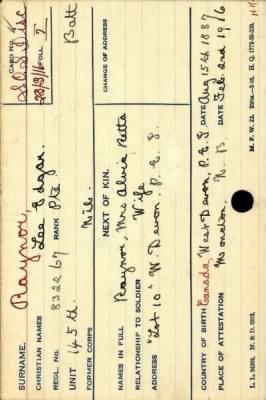 SURNAME. Raynor, CARD NO. S.O.S. Disc
CHRISTIAN NAMES Lee Edgar. 23/3/16 FOLL. 2
REGL. NO. 832267 RANK Pte
UNIT 145th Batt
FORMER CORPS Nil.
NEXT OF KIN. CHANGE OF ADDRESS
NAMES IN FULL Raynor, Mrs Alvia Retta
RELATIONSHIP TO SOLDIER Wife
ADDRESS "Lot 10" W. Devon P.E.I.
COUNTRY OF BIRTH Canada, West Devon, P.E.I DATE Aug 15th 1887
PLACE OF ATTESTATION Moncton. N.B. DATE Feb. 2nd 1916
L. L. M. & D. M. F. W. 22. H. Q.